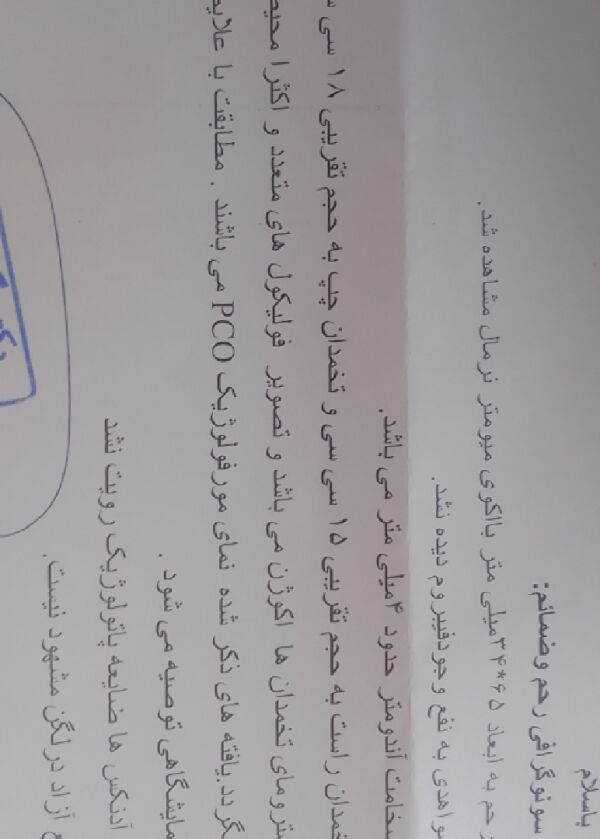 باسلام
سونوگرافی رحم وضمائم:
رحم به ابعاد ۶۵*۳۴میلی متر بااکوی میومتر نرمال مشاهده شد.
شواهدی به نفع وجودفیبروم دیده نشد.
ضخامت آندومتر حدود ۴میلی متر می باشد.
تخمدان راست به حجم تقریبی ۱۵ سی سی و تخمدان چپ به حجم تقریبی ۱۸ سی
استرومای تخمدان ها اکوژن می باشد و تصویر فولیکول های متعدد و اکثرا
گردد.یافته های ذکر شده نمای مورفولوژیک PCO می باشند . مطابقت با
آزمایشگاهی توصیه می شود .
آدنکس ها ضایعه پاتولوژیک رویت نشد
آزاد درلگن مشهود نیست.